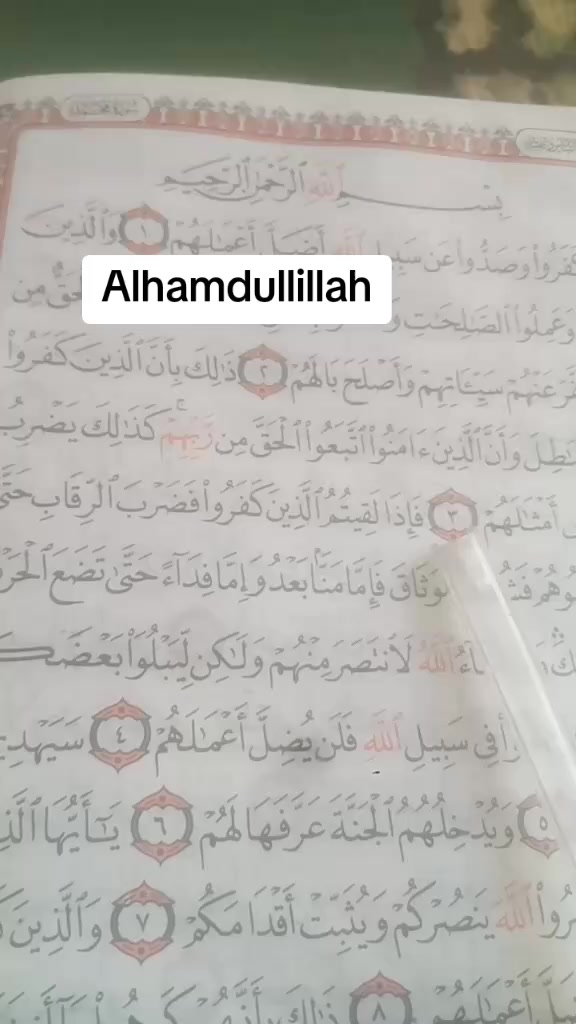 سورة محمد
بسم الله الرحمن الرحيم
كَفَرُوا۟ وَصَدُّوا۟ عَن سَبِيلِ ٱللَّهِ أَضَلَّ أَعْمَـٰلَهُمْ ١ وَٱلَّذِينَ
Alhamdullillah
وَعَمِلُوا۟ ٱلصَّـٰلِحَـٰتِ
مِن
كَفَّرَ عَنْهُمْ سَيِّـَٔاتِهِمْ وَأَصْلَحَ بَالَهُمْ ٢ ذَٰلِكَ بِأَنَّ ٱلَّذِينَ كَفَرُوا۟
وَأَنَّ ٱلَّذِينَ ءَامَنُوا۟ ٱتَّبَعُوا۟ ٱلْحَقَّ مِن رَّبِّهِمْ كَذَٰلِكَ يَضْرِبُ
أَمْثَـٰلَهُمْ ٣ فَإِذَا لَقِيتُمُ ٱلَّذِينَ كَفَرُوا۟ فَضَرْبَ ٱلرِّقَابِ حَتَّىٰ
فَإِمَّا مَنًّۢا بَعْدُ وَإِمَّا فِدَآءً حَتَّىٰ تَضَعَ ٱلْحَرْ
ٱللَّهُ لَٱنتَصَرَ مِنْهُمْ وَلَـٰكِن لِّيَبْلُوَا۟ بَعْضَكُ
فِى سَبِيلِ ٱللَّهِ فَلَن يُضِلَّ أَعْمَـٰلَهُمْ ٤ سَيَهْدِي
٥ وَيُدْخِلُهُمُ ٱلْجَنَّةَ عَرَّفَهَا لَهُمْ ٦ يَـٰٓأَيُّهَا ٱلَّذِ
ٱللَّهَ يَنصُرْكُمْ وَيُثَبِّتْ أَقْدَامَكُمْ ٧ وَٱلَّذِينَ
أَعْمَـٰلَهُمْ ٨ ذَٰلِكَ بِأَنَّهُمْ